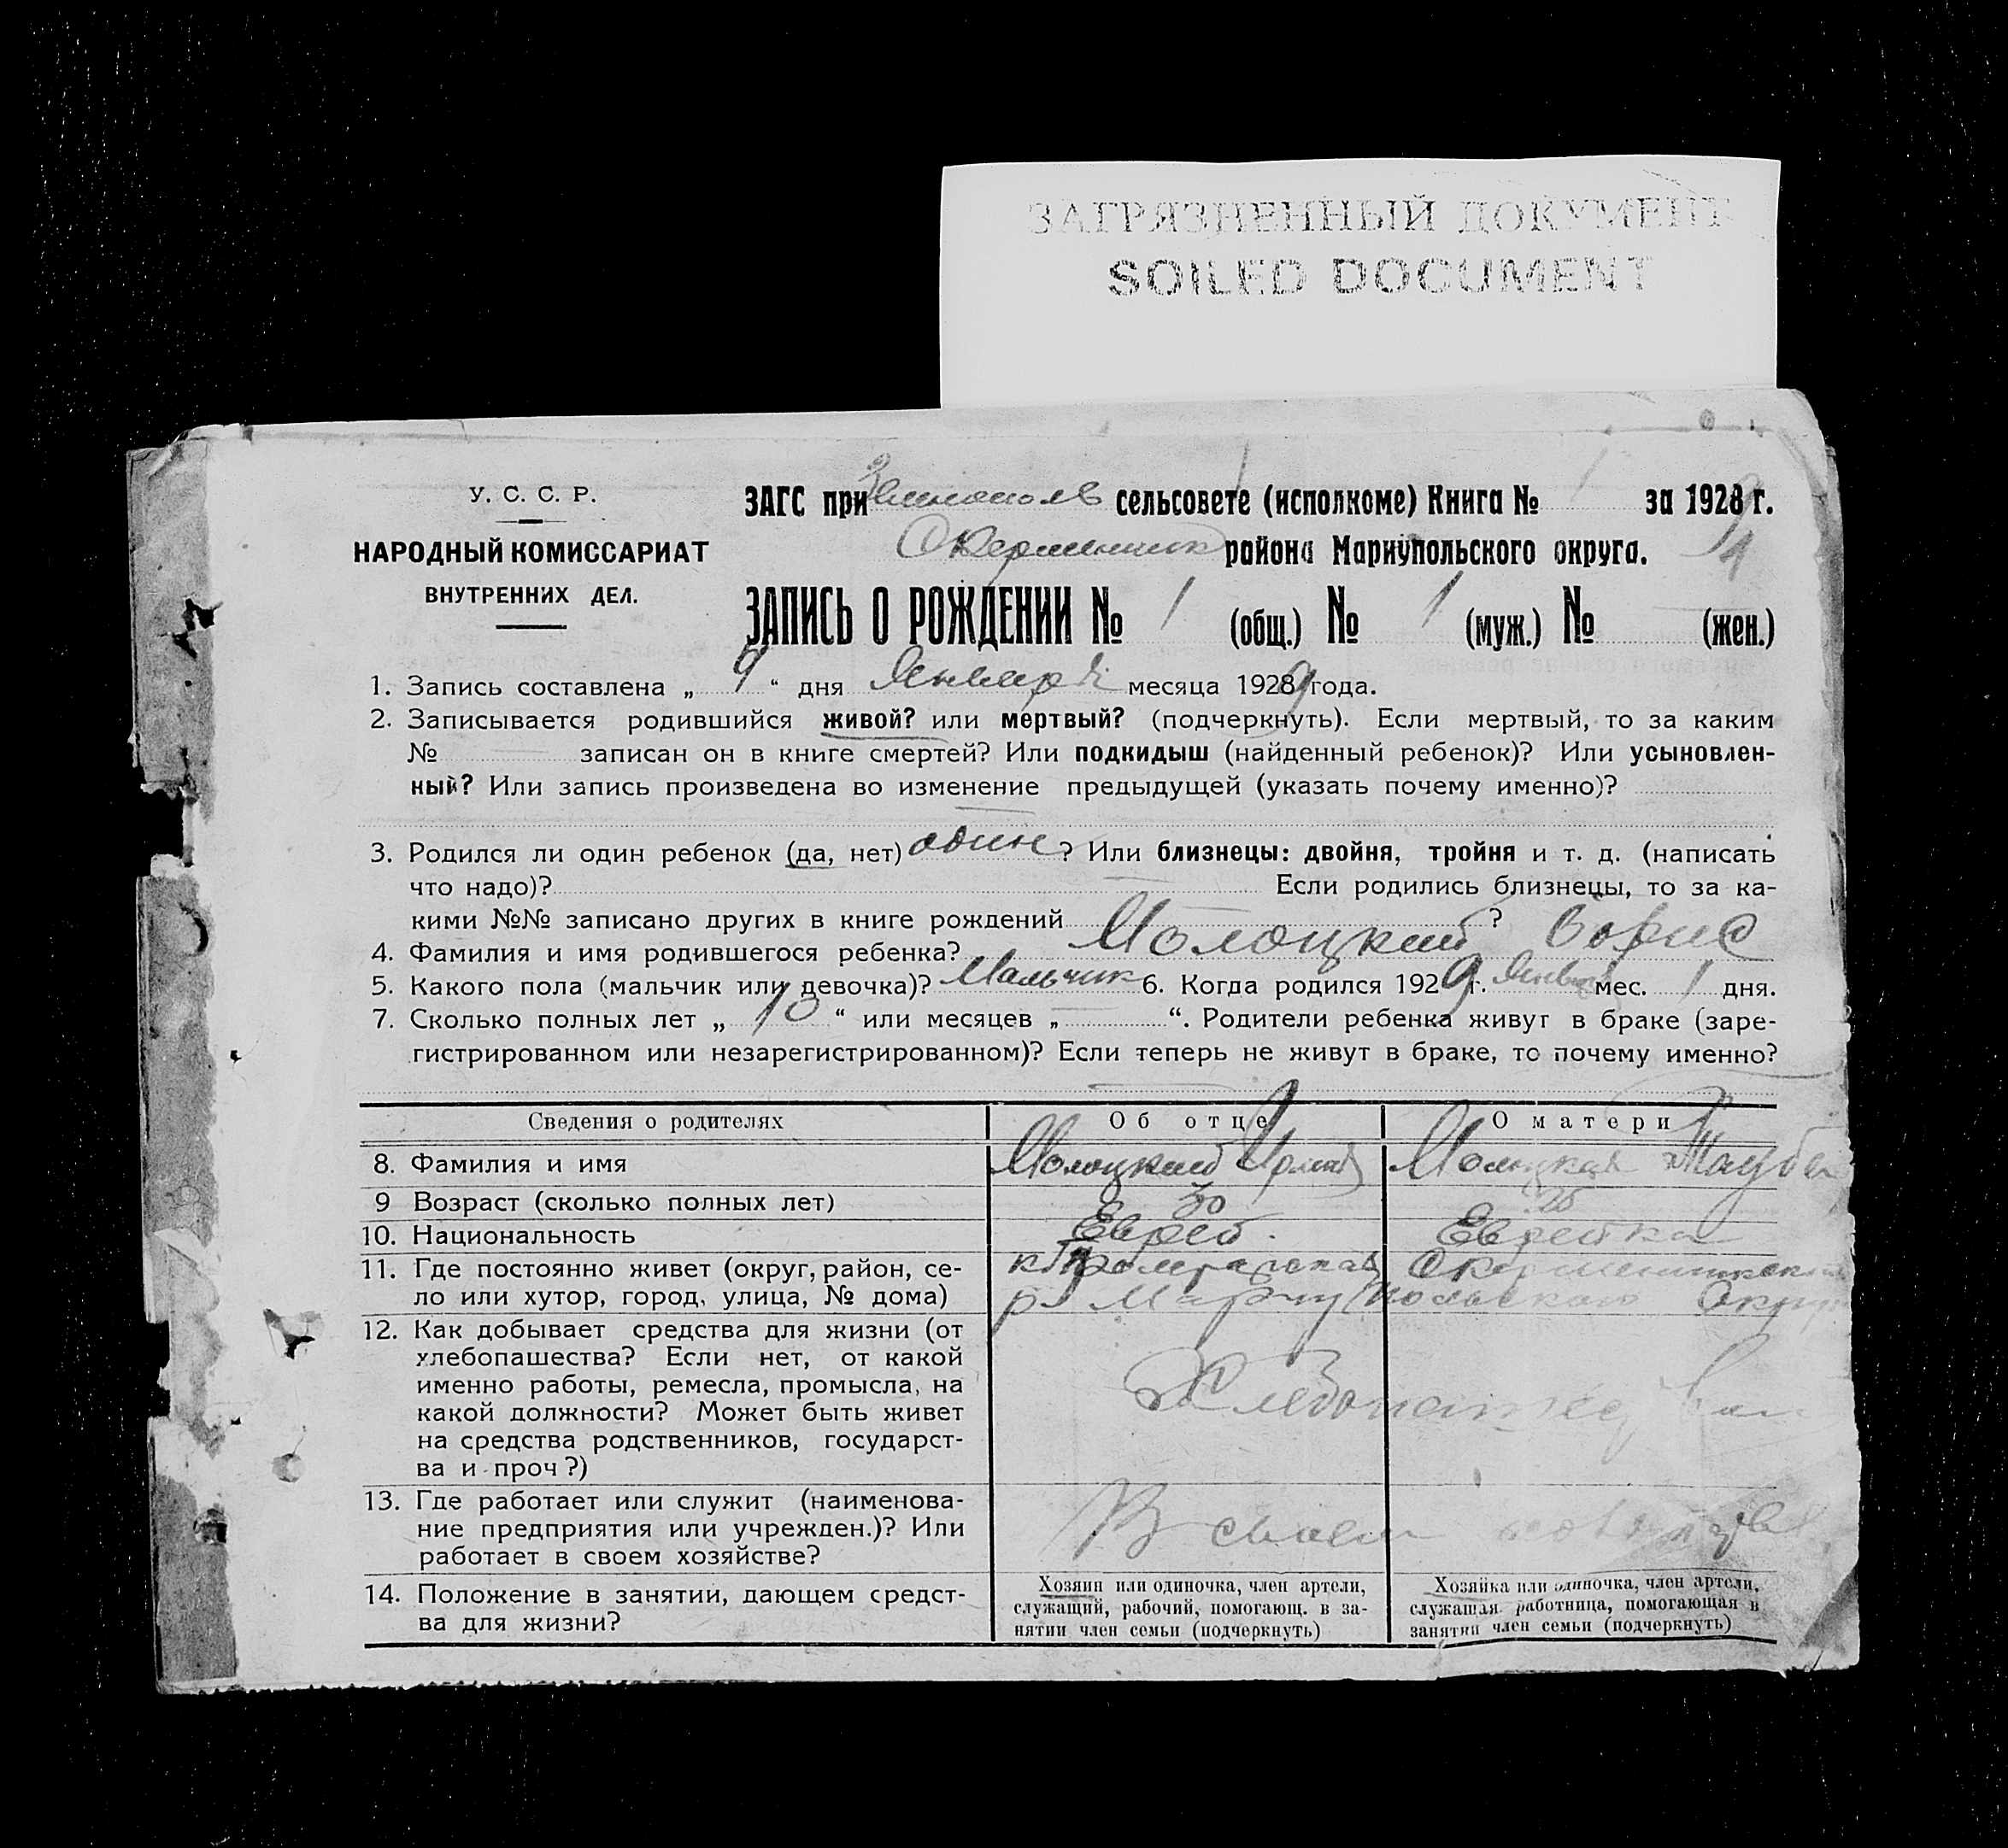 ЗАГРЯЗНЕННЫЙ ДОКУМЕНТ
SOILED DOCUMENT
У. С. С. Р.
НАРОДНЫЙ КОМИССАРИАТ
ВНУТРЕННИХ ДЕЛ.
ЗАГС при сельсовете (исполкоме) Книга № 1 за 1929 г.
района Мариупольского округа.
ЗАПИСЬ О РОЖДЕНИИ № 1 (общ.) № 1 (муж.) № (жен.)
1. Запись составлена „ 9 “ дня Января месяца 1929 года.
2. Записывается родившийся живой? или мертвый? (подчеркнуть). Если мертвый, то за каким
№ записан он в книге смертей? Или подкидыш (найденный ребенок)? Или усыновлен-
ный? Или запись произведена во изменение предыдущей (указать почему именно)?
3. Родился ли один ребенок (да, нет) один? Или близнецы: двойня, тройня и т. д. (написать
что надо)? Если родились близнецы, то за ка-
кими №№ записано других в книге рождений ?
4. Фамилия и имя родившегося ребенка? Молоцкий Борис
5. Какого пола (мальчик или девочка)? Мальчик 6. Когда родился 1929 г. Январ мес. 1 дня.
7. Сколько полных лет „ 10 “ или месяцев „ “. Родители ребенка живут в браке (заре-
гистрированном или незарегистрированном)? Если теперь не живут в браке, то почему именно?
Сведения о родителях Об отце О матери
8. Фамилия и имя Молоцкий Молоцкая Тауба
9 Возраст (сколько полных лет) 30 26
10. Национальность Еврей. Еврейка
11. Где постоянно живет (округ, район, се-
ло или хутор, город, улица, № дома) Мариупольского Округа
12. Как добывает средства для жизни (от
хлебопашества? Если нет, от какой
именно работы, ремесла, промысла, на
какой должности? Может быть живет
на средства родственников, государст-
ва и проч?)
Хлебопашество
13. Где работает или служит (наименова-
ние предприятия или учрежден.)? Или
работает в своем хозяйстве?
В своем хозяйстве
14. Положение в занятии, дающем средст-
ва для жизни?
Хозяин или одиночка, член артели,
служащий, рабочий, помогающ. в за-
нятии член семьи (подчеркнуть)
Хозяйка или одиночка, член артели,
служащая работница, помогающая в
занятии член семьи (подчеркнуть)